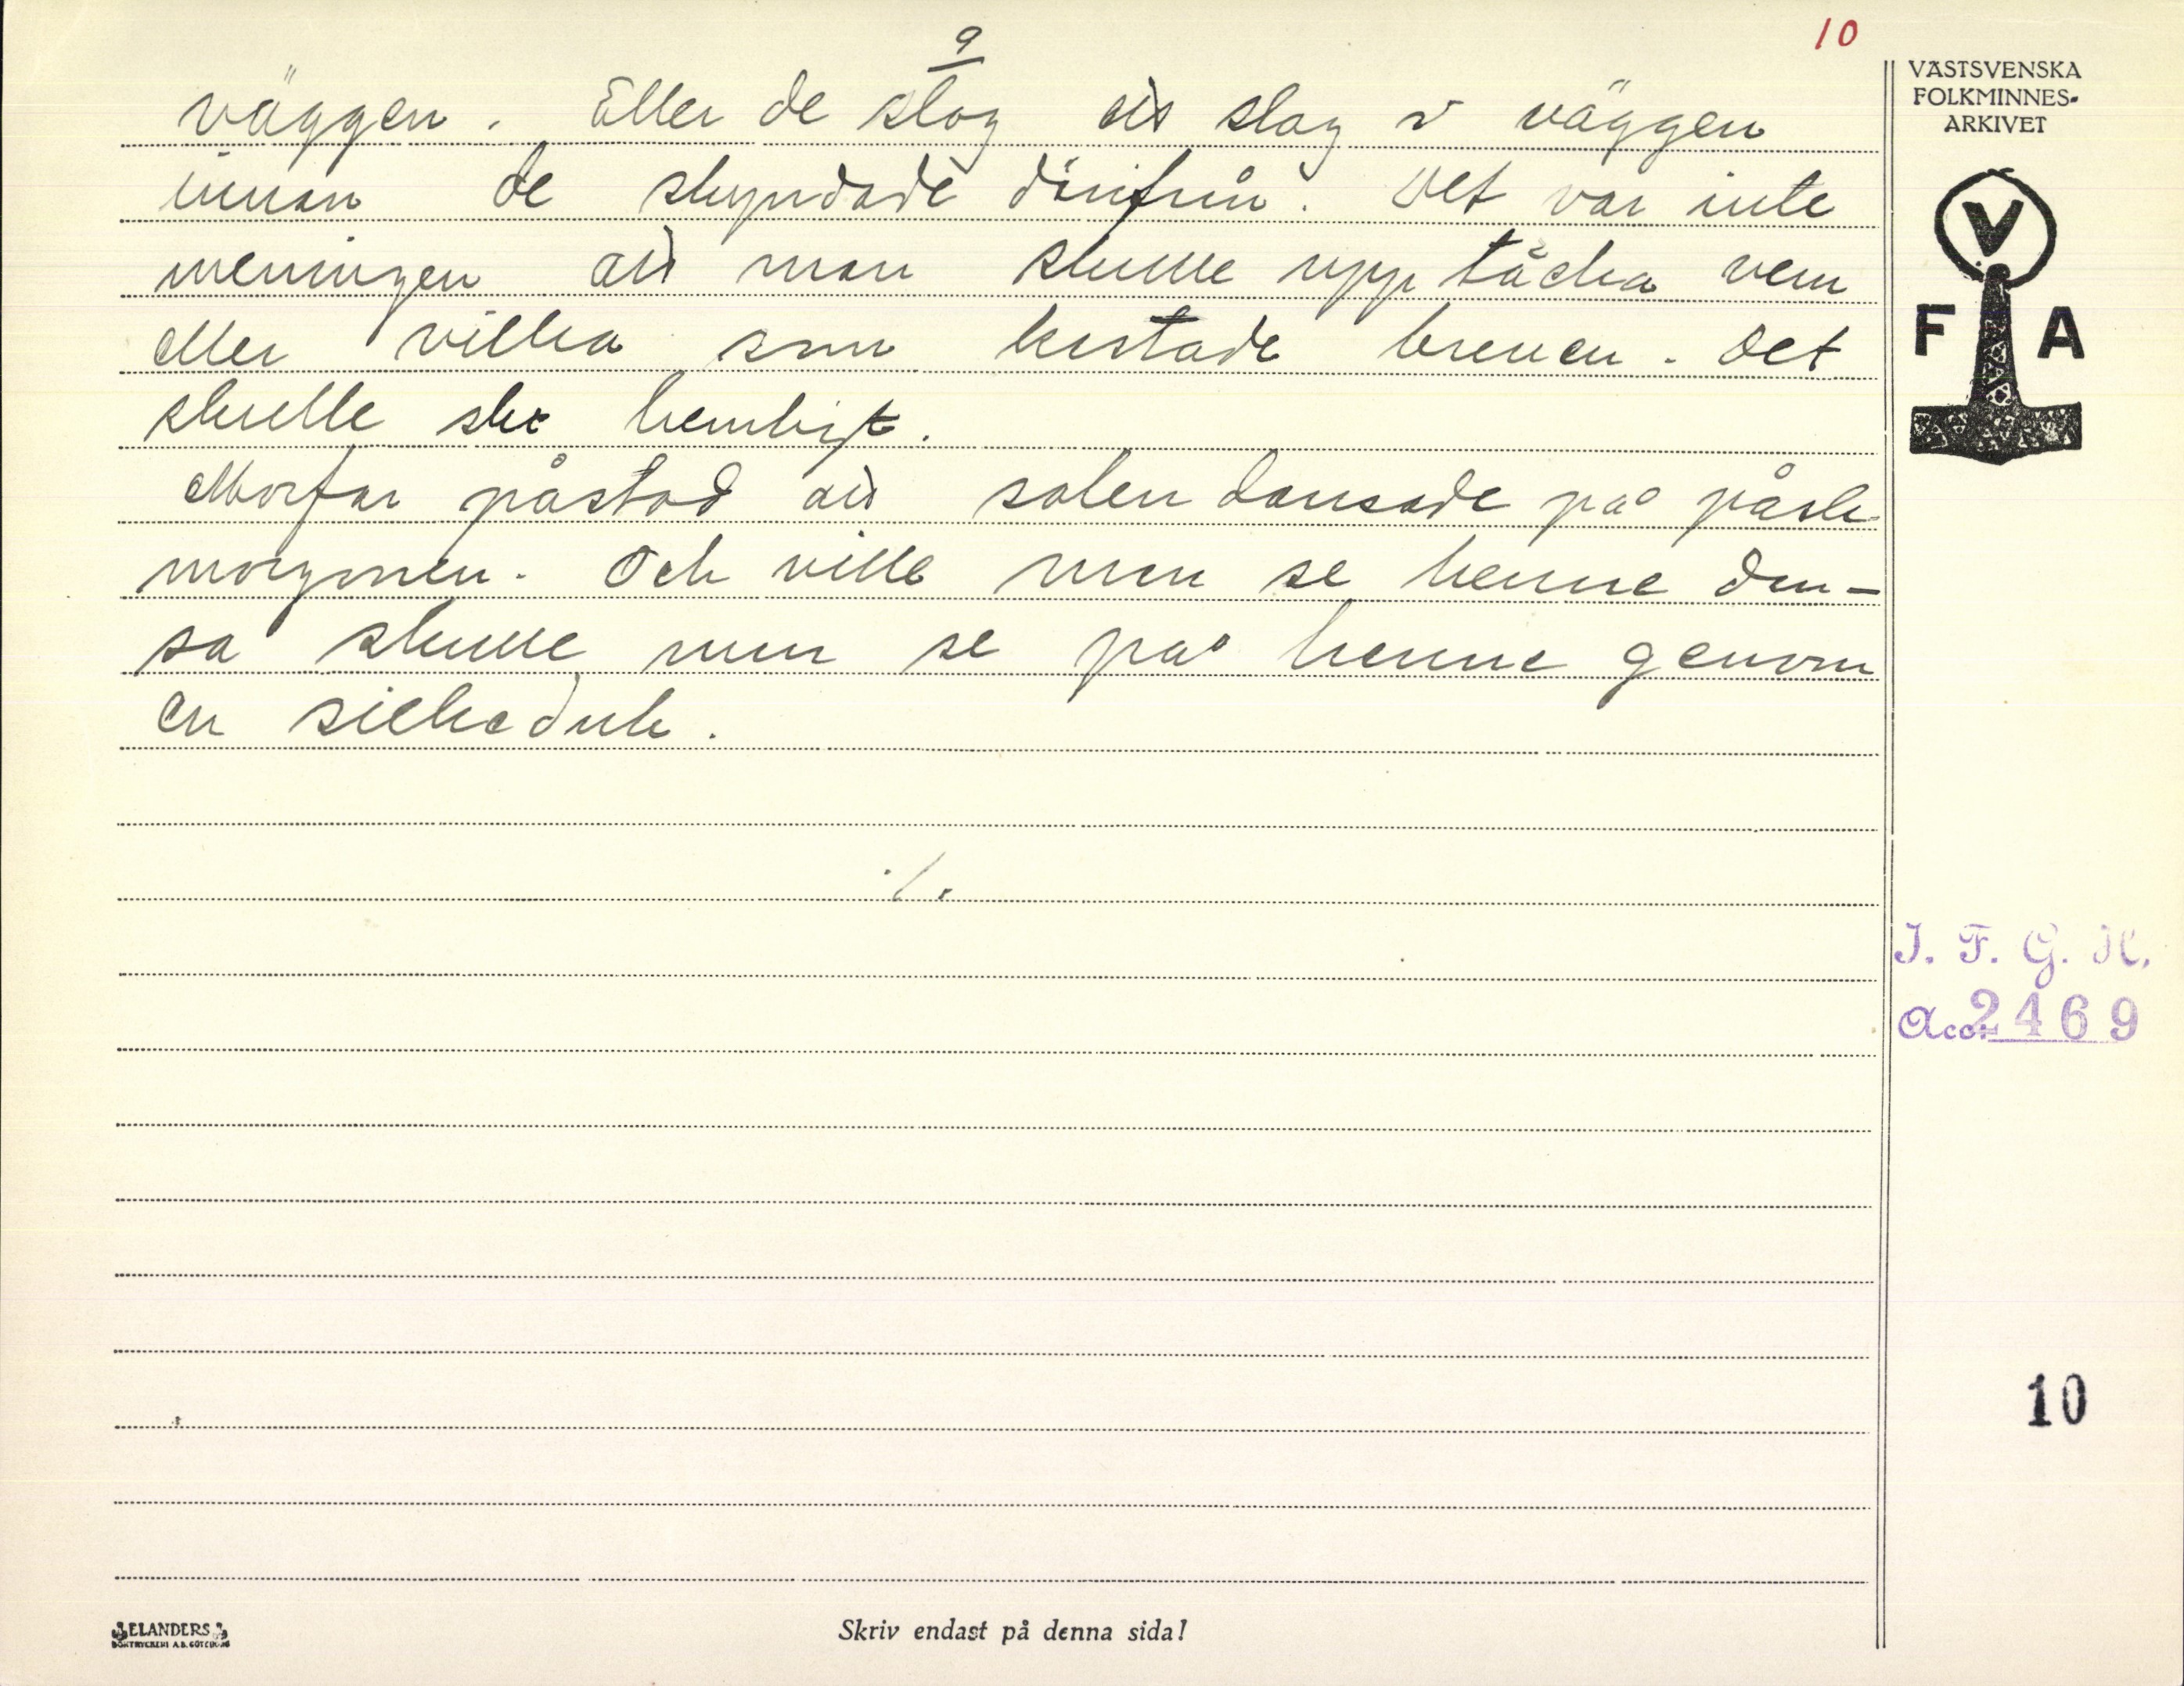 9
10
väggen. Eller de slog ett slag i väggen
innan de skyndade därifrån. Det var inte
meningen att man skulle upptäcka vem
eller vilka som kastade breven. Det
skulle ske hemligt.
Morfar påstod att solen dansade på påsk
morgonen. Och ville man se henne dan-
sa skulle man se på henne genom
en silkeduk.
./.
VÄSTSVENSKA
FOLKMINNES-
ARKIVET
V
F A
I. F. G. H.
Acc. 2469
10
ELANDERS
BOKTRYCKERI A.B. GÖTEBORG
Skriv endast på denna sida!